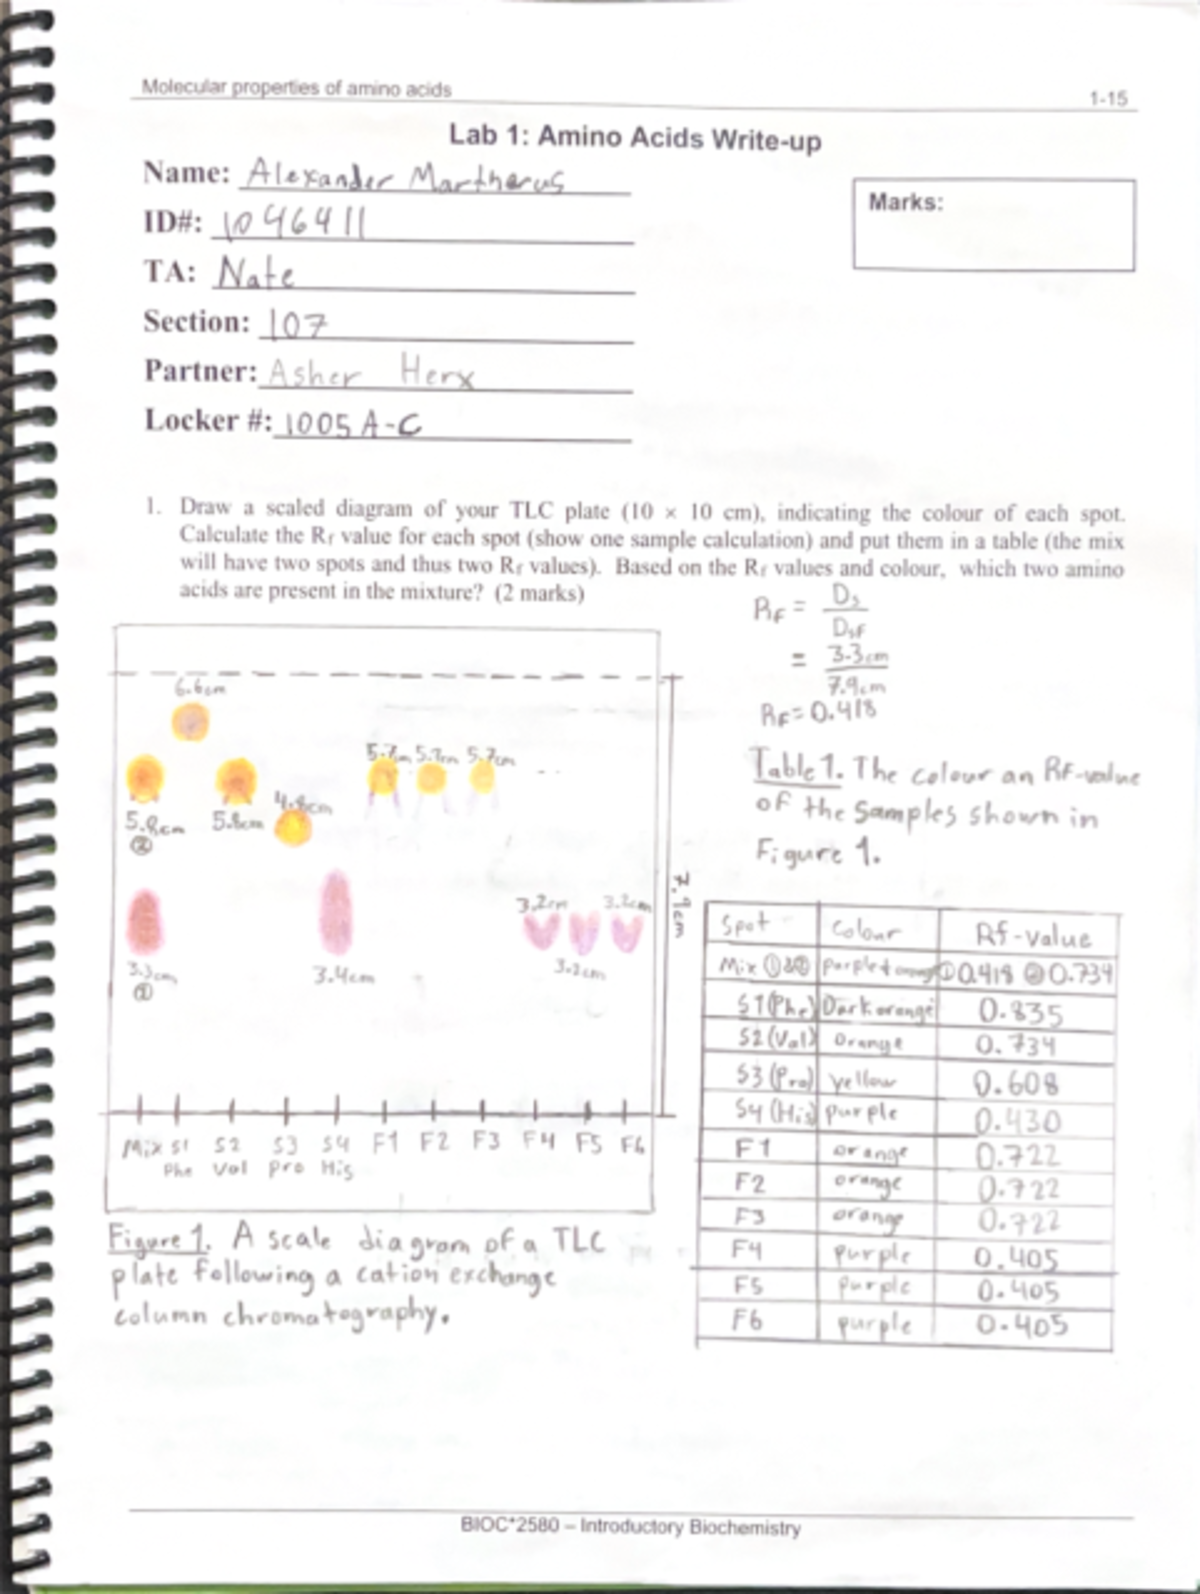 Molecular properties of amino acids 1-15
Lab 1: Amino Acids Write-up
Name: Alexander Martherus
Marks:
ID#: 1046411
TA: Nate
Section: 107
Partner: Asher Herx
Locker #: 1005 A-C
1. Draw a scaled diagram of your TLC plate (10 × 10 cm), indicating the colour of each spot.
Calculate the Rf value for each spot (show one sample calculation) and put them in a table (the mix
will have two spots and thus two Rf values). Based on the Rf values and colour, which two amino
acids are present in the mixture? (2 marks)
RF = Ds
DSF
= 3.3cm
7.9cm
RF = 0.418
6.6cm
5.7cm 5.7cm 5.7cm
4.8cm
5.8cm 5.8cm
②
3.2cm 3.2cm
3.3cm 3.4cm 3.2cm
①
7.9cm
Mix S1 S2 S3 S4 F1 F2 F3 F4 F5 F6
Phe Val Pro His
Figure 1. A scale diagram of a TLC
plate following a cation exchange
column chromatography.
Table 1. The colour an Rf-value
of the samples shown in
Figure 1.
Spot Colour Rf-value
Mix ①&② purple+orange ①0.418 ②0.734
S1 (Phe) Dark orange 0.835
S2 (Val) orange 0.734
S3 (Pro) yellow 0.608
S4 (His) purple 0.430
F1 orange 0.722
F2 orange 0.722
F3 orange 0.722
F4 purple 0.405
F5 purple 0.405
F6 purple 0.405
BIOC*2580 – Introductory Biochemistry